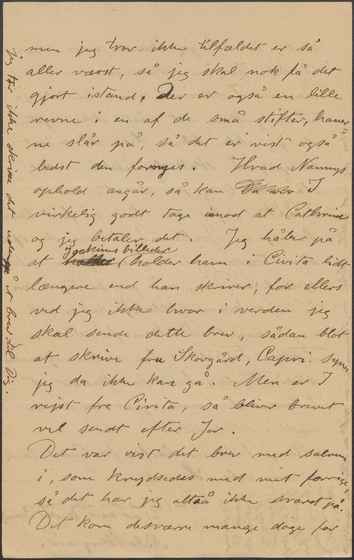 men jeg tror ikke tilfældet er så
aller værst, så jeg skal nok få det
gjort istand. Der er også en lille
revne i en af de små stifter, hamre
ne slår på, så det er vist også
bedst den fornyes. Hvad Nannys
ophold angår, så kan I
virkelig godt tage imod at Cathrine
og jeg betaler det. Jeg håber på
at Joakims billeder holder ham i Civita lidt
længere end han skriver, for ellers
ved jeg ikke hvor i verden jeg
skal sende dette brev, sådan blot
at skrive fra Skovgård, Capri synes
jeg da ikke kan gå. Men er I
rejst fra Civita, så bliver brevet
vel sendt efter Jer.
Det var vist det brev med salmen
i, som krydsedes med mit forrige
så det har jeg altså ikke svaret på.
Det kom desværre mange dage for
jeg tør ikke skrive det uden på et brev til Dig.